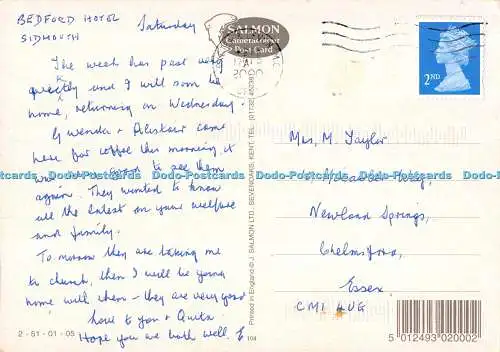 BEDFORD HOTEL
SIDMOUTH
Saturday
The week has past very
quickly and I will soon be
home, returning on Wednesday
Gwenda + Alistair came
here for coffee this morning, it
was good to see them
again. They wanted to know
all the latest on your welfare
and family.
To morrow they are taking me
to church, then I will be going
home with them - they are very good
love to you + Quita
Hope you are both well. E
2-51-01-05
104
SALMON
Cameracolour
Post Card
Printed in England © J. SALMON LTD., SEVENOAKS, KENT. TEL: (01732) 452381
2ND
Mrs. M. Taylor
Way,
Newland Springs,
Chelmsford,
Essex
CM1 4UG
5 012493 020002
Dodo-Postcards Dodo-Postcards Dodo-Postcards Dodo-Postcards Dodo-Postcards Dodo-Postcards